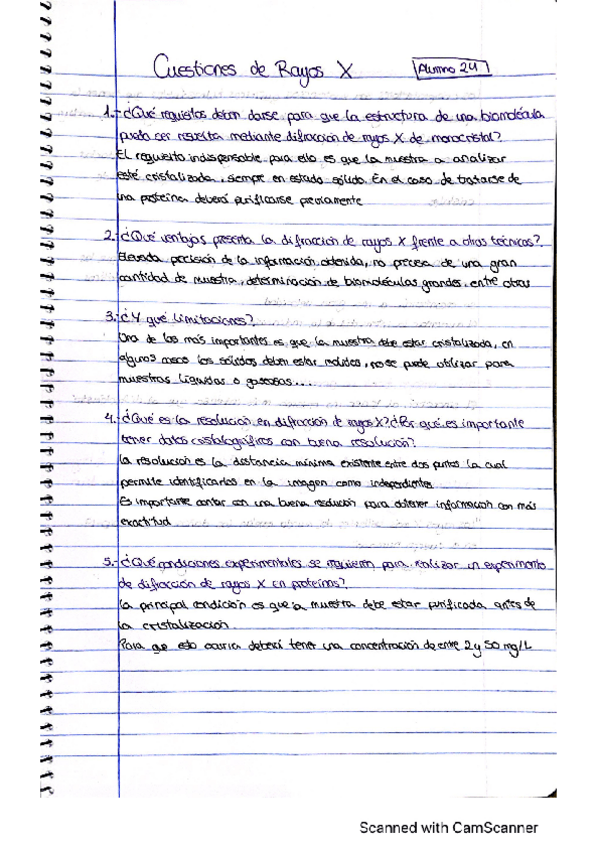 Cuestiones de Rayos X
Alumno 24
1.- ¿Qué requisitos deben darse para que la estructura de una biomolécula
pueda ser resuelta mediante difracción de rayos X de monocristal?
El requisito indispensable para ello es que la muestra a analizar
esté cristalizada, siempre en estado sólido. En el caso de tratarse de
una proteína deberá purificarse previamente
2.- ¿Qué ventajas presenta la difracción de rayos X frente a otras técnicas?
Elevada precisión de la información obtenida, no precisa de una gran
cantidad de muestra, determinación de biomoléculas grandes, entre otras
3.- ¿Y qué limitaciones?
Una de las más importantes es que la muestra debe estar cristalizada, en
algunos casos los sólidos deben estar molidos, no se puede utilizar para
muestras líquidas o gaseosas....
4.- ¿Qué es la resolución en difracción de rayos X? ¿Por qué es importante
tener datos cristalográficos con buena resolución?
La resolución es la distancia mínima existente entre dos puntos la cual
permite identificarlos en la imagen como independientes
Es importante contar con una buena resolución para obtener información con más
exactitud
5.- ¿Qué condiciones experimentales se requieren para realizar un experimento
de difracción de rayos X en proteínas?
La principal condición es que la muestra debe estar purificada antes de
la cristalización
Para que esto ocurra deberá tener una concentración de entre 2 y 50 mg/L
Scanned with CamScanner